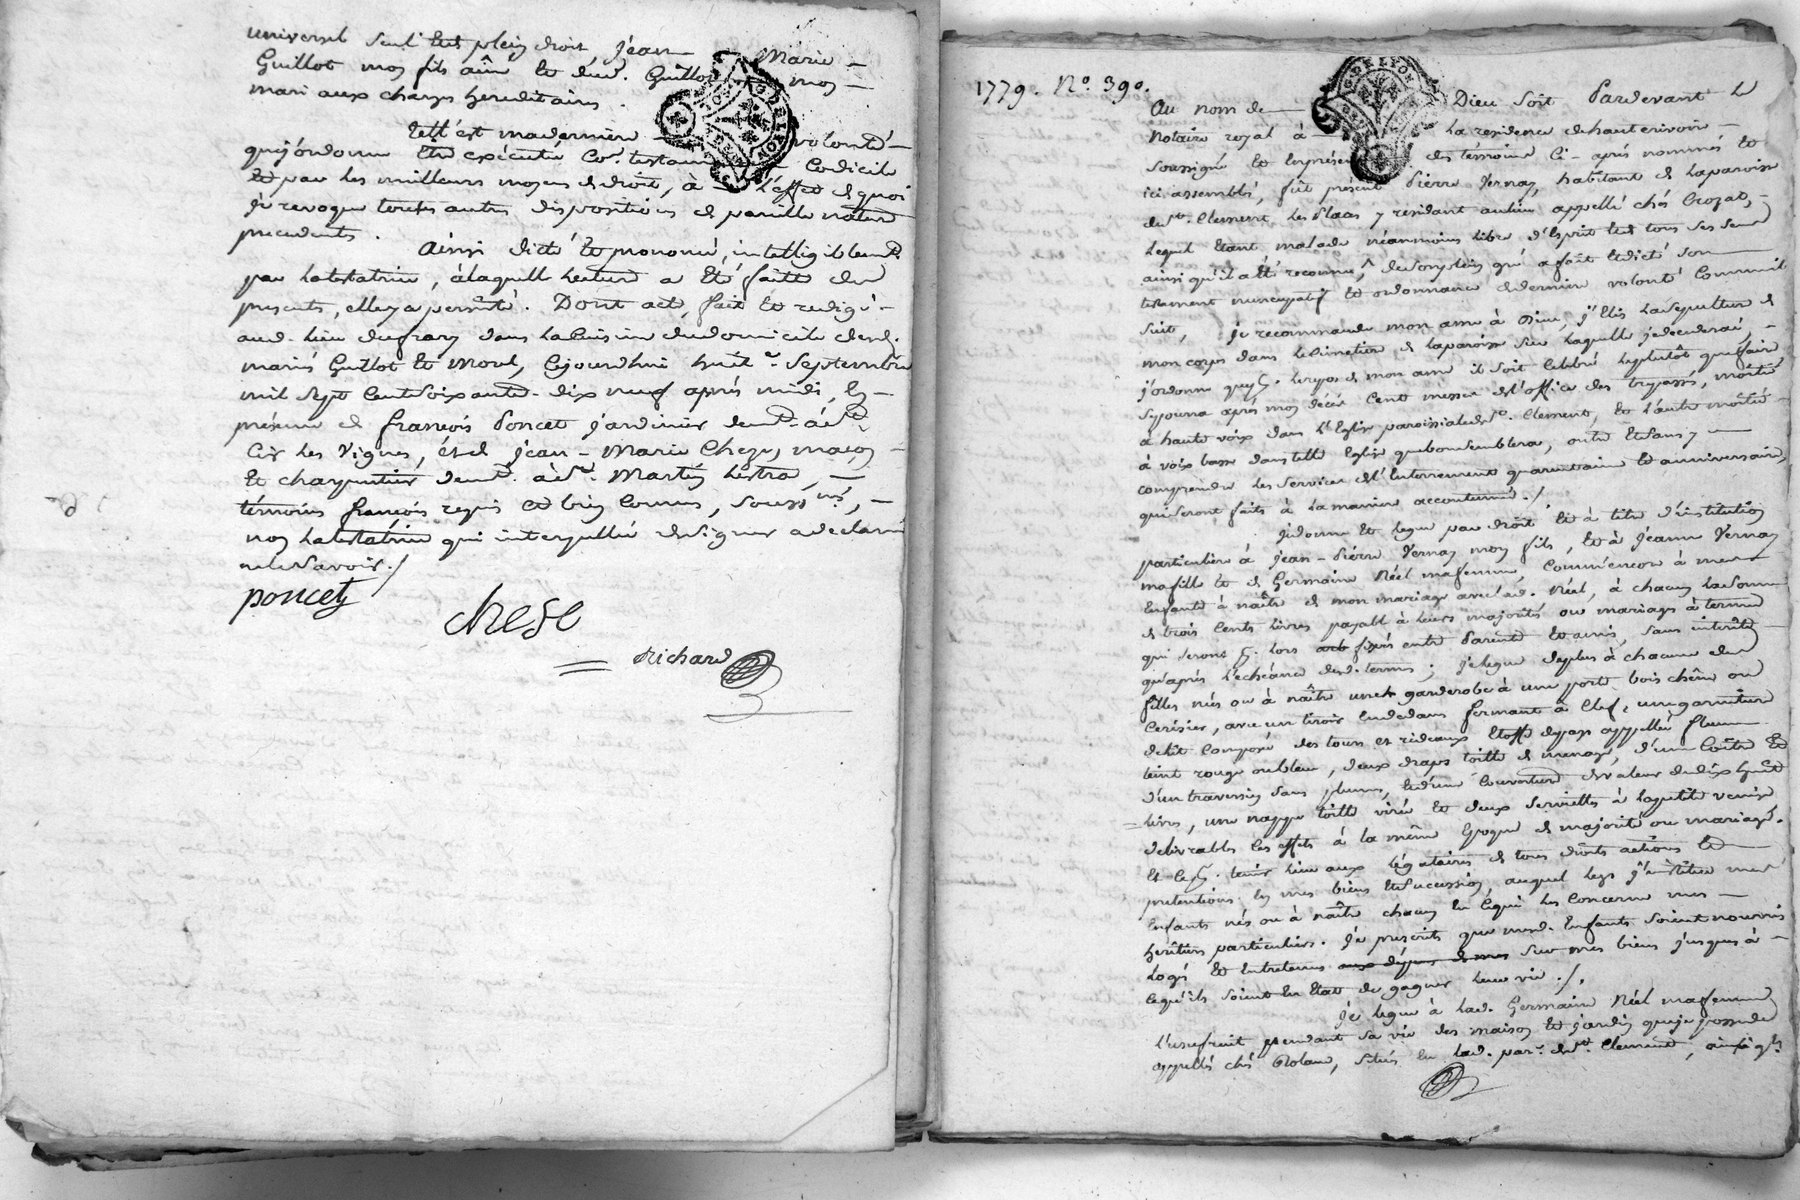 universel seul et de plein droit Jean Marie
Guillot mon fils aîné et dud. Guillot mon
mari aux charges hereditaires.
telle est ma derniere volonté
que j'ordonne être executée Codicile
et par les meilleurs moyens de droit, à l'effet de quoi
je revoque toutes autres dispositions de pareille nature
precedentes.
ainsi dicté et prononcé, intelligiblemt.
par la testatrice, à laquelle lecture a été faitte des
presentes, elle y a persisté. Dont acte, fait et redigé
aud. lieu dans la cuisine du domicile desd.
mariés Guillot et Morel, cejourdhui huit Septembre
mil sept cent soixante-dix neuf après midi, en
présence de françois Poncet jardinier demt. à St.
Cir les Vignes, et de Jean-Marie Cheze, maçon
et charpentier demt. à St. Martin Lestra,
témoins françois requis et bien connus, soussnés,
non la testatrice qui interpellée de signer a declaré
ne le savoir./
poncet
cheze
Richard
1779. No. 390.
Au nom de Dieu soit Pardevant le
Notaire royal à la residence de hauterivoire
soussigné et en présence des témoins ci-après nommés et
ici assemblés, fût présent Pierre Vernay, habitant de la paroisse
de St. Clement les Places y residant au lieu appellé chés Crozat,
lequel étant malade néanmoins libre d'esprit et de tous ses sens
ainsi qu'il a été reconnu, de son plein gré a fait et dicté son
testament nuncupatif et ordonnance de derniere volonté comme il
suit, je recommande mon ame à Dieu, j'élis la sepulture de
mon corps dans le cimetiere de la paroisse sur laquelle je decederai,
j'ordonne que p. le repos de mon ame il soit celebré le plutôt que faire
se pourra après mon décès cent messes de l'office des trepassés, moitié
à haute voix dans l'Eglise paroissiale de St. Clement, et l'autre moitié
à voix basse dans telle Eglise que bon semblera, outre et sans y
comprendre les services de l'enterrement quarantaine et anniversaire,
qui seront faits à la maniere accoutumée./
Je donne et legue par droit et à titre d'institution
particuliere à Jean-Pierre Vernay mon fils, et à Jeanne Vernay
ma fille et de Germaine Néel ma femme, comm'encore à mes
enfants à naître de mon mariage avec lad. Néel, à chacun la somme
de trois cents livres payable à leurs majorités ou mariages à termes
qui seront p. lors fixés entre Parents et amis, sans interêts
qu'après l'echéance desd. termes; je legue de plus à chacune des
filles nées ou à naître une garderobe à une porte bois chêne ou
cerisier, avec un tiroir en dedans fermant à clef, une garniture
de lit composée des tours et rideaux étoffe du pays appellée fleuret
teint rouge ou bleu, deux draps toille de menage, d'une coêtre et
d'un traversin sans plumes, et d'une couverture de valeur de dix huit
livres, une nappe toille virée et deux serviettes à la petite venise
delivrables les effets à la même époque de majorité ou mariage.
et ce p. tenir lieu aux légataires de tous droits actions et
pretentions en mes biens et succession, auquel legs j'institue mes
enfants nés ou à naître chacun en ce qui les concerne mes
heritiers particuliers. Je prescrits que mesd. enfants soient nourris
logés et entretenus aux dépens de mes sur mes biens jusques à
ce qu'ils soient en état de gagner leur vie./.
Je legue à lad. Germaine Néel ma femme
l'usufruit pendant sa vie des maison et jardin que je possede
appellés chés Roland, situés en lad. par. de St. Clement, ainsi q.